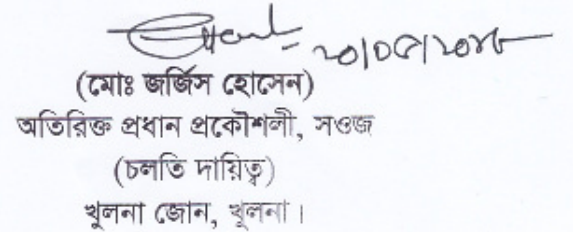 ২০/০৫/২০১৮
(মোঃ জর্জিস হোসেন)
অতিরিক্ত প্রধান প্রকৌশলী, সওজ
(চলতি দায়িত্ব)
খুলনা জোন, খুলনা।